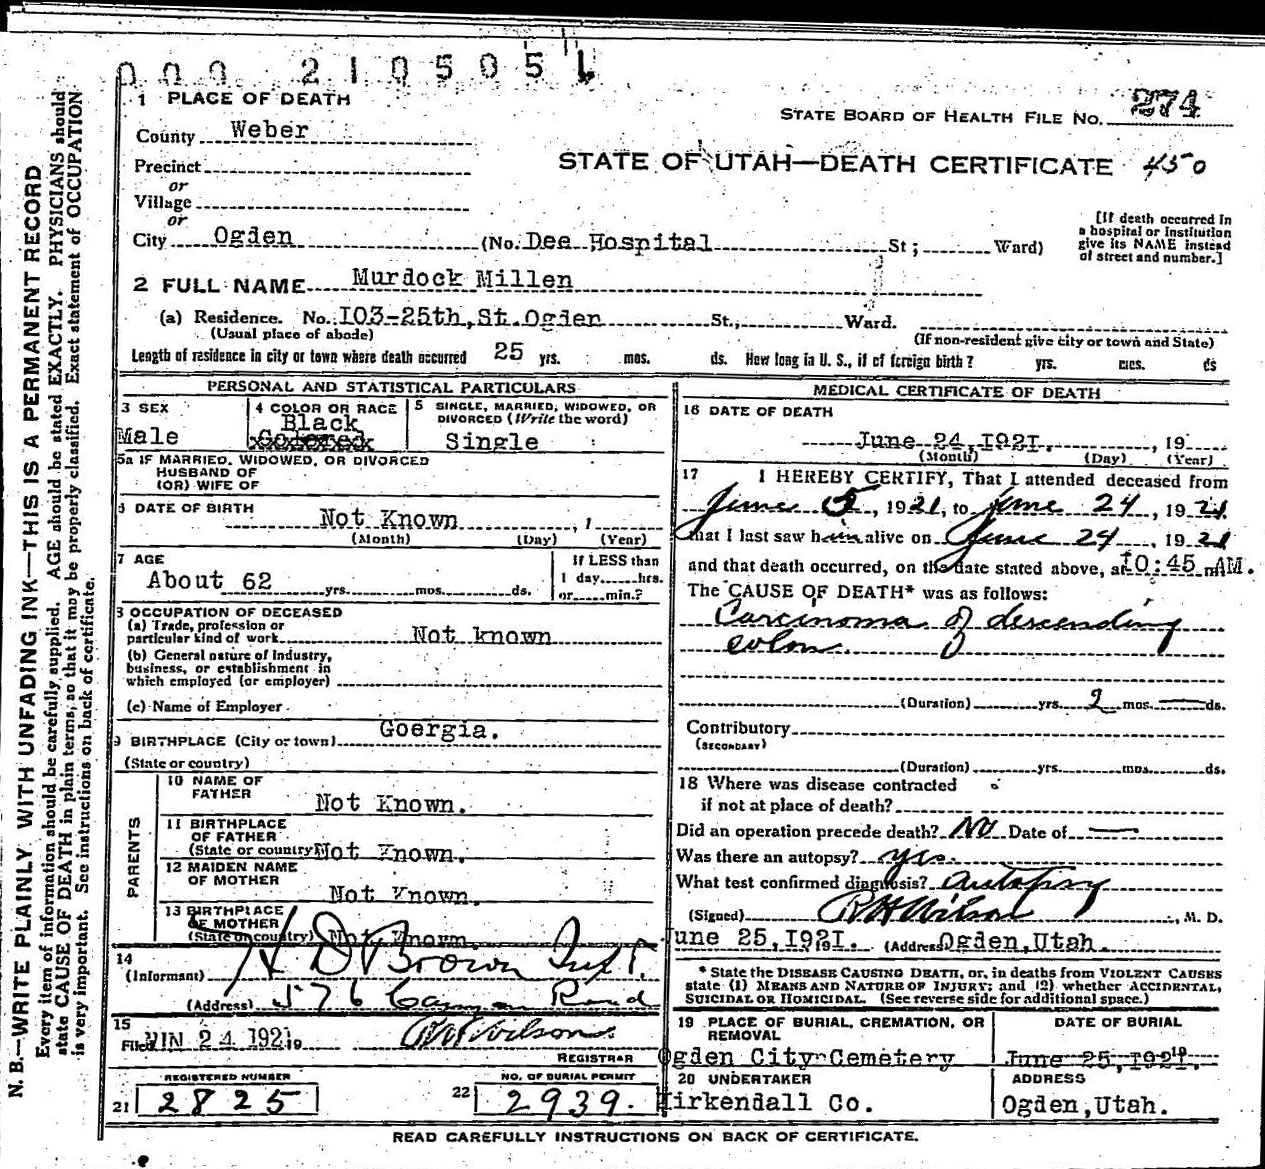 000 2105051
1 PLACE OF DEATH
STATE BOARD OF HEALTH FILE NO. 274
County Weber
STATE OF UTAH—DEATH CERTIFICATE 450
Precinct
or
Village
or
City Ogden (No. Dee Hospital St; Ward)
[If death occurred in a hospital or institution give its NAME instead of street and number.]
2 FULL NAME Murdock Millen
(a) Residence. No. I03-25th,St.Ogden St., Ward.
(Usual place of abode) (If non-resident give city or town and State)
Length of residence in city or town where death occurred 25 yrs. mos. ds. How long in U. S., if of foreign birth? yrs. mos. ds
PERSONAL AND STATISTICAL PARTICULARS
3 SEX
Male
4 COLOR OR RACE
Black
Colored
5 SINGLE, MARRIED, WIDOWED, OR DIVORCED (Write the word)
Single
5a IF MARRIED, WIDOWED, OR DIVORCED
HUSBAND OF
(OR) WIFE OF
6 DATE OF BIRTH
Not Known , 1
(Month) (Day) (Year)
7 AGE
About 62 yrs. mos. ds.
If LESS than
1 day hrs.
or min.?
8 OCCUPATION OF DECEASED
(a) Trade, profession or
particular kind of work Not known
(b) General nature of Industry,
business, or establishment in
which employed (or employer)
(c) Name of Employer
Goergia.
9 BIRTHPLACE (City or town)
(State or country)
PARENTS
10 NAME OF
FATHER
Not Known.
11 BIRTHPLACE
OF FATHER
(State or country) Not Known.
12 MAIDEN NAME
OF MOTHER
Not Known.
13 BIRTHPLACE
OF MOTHER
(State or country) Not Known.
14
(Informant) H D Brown Supt.
(Address) 576 Canyon Road
15
Filed JUN 24 1921 19 R W Wilson
REGISTRAR
REGISTERED NUMBER
21 2825
NO. OF BURIAL PERMIT
22 2939.
MEDICAL CERTIFICATE OF DEATH
16 DATE OF DEATH
June 24,I92I. , 19
(Month) (Day) (Year)
17 I HEREBY CERTIFY, That I attended deceased from
June 5, 1921, to June 24, 1921
that I last saw him alive on June 24, 1921
and that death occurred, on the date stated above, at I0:45 m AM.
The CAUSE OF DEATH* was as follows:
Carcinoma of descending
colon.
(Duration) yrs. 2 mos. — ds.
Contributory
(SECONDARY)
(Duration) yrs. mos. ds.
18 Where was disease contracted
if not at place of death?
Did an operation precede death? No Date of —
Was there an autopsy? yes.
What test confirmed diagnosis? autopsy
(Signed) R W Wilson , M. D.
June 25,I92I. (Address Ogden,Utah.
* State the DISEASE CAUSING DEATH, or, in deaths from VIOLENT CAUSES
state (1) MEANS AND NATURE OF INJURY; and (2) whether ACCIDENTAL,
SUICIDAL OR HOMICIDAL. (See reverse side for additional space.)
19 PLACE OF BURIAL, CREMATION, OR
REMOVAL
Ogden City Cemetery
DATE OF BURIAL
June 25,I92I. 19
20 UNDERTAKER
Kirkendall Co.
ADDRESS
Ogden,Utah.
READ CAREFULLY INSTRUCTIONS ON BACK OF CERTIFICATE.
N. B.—WRITE PLAINLY WITH UNFADING INK—THIS IS A PERMANENT RECORD
Every item of information should be carefully supplied. AGE should be stated EXACTLY. PHYSICIANS should
state CAUSE OF DEATH in plain terms, so that it may be properly classified. Exact statement of OCCUPATION
is very important. See instructions on back of certificate.